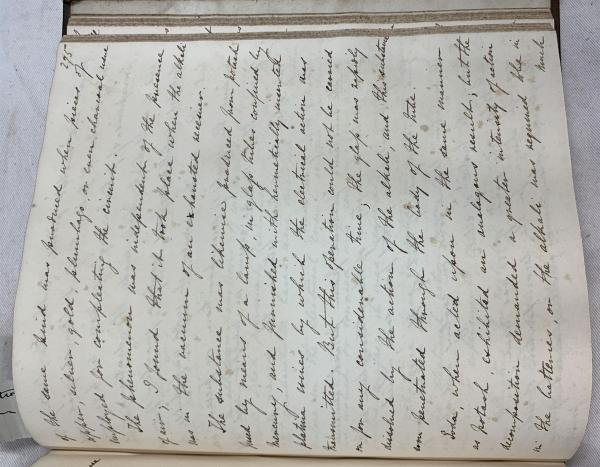 295
the same kind was produced when pieces of
copper, silver, gold, plumbago, or even charcoal were
employed for compleating the circuit.
The phenomenon was independent of the presence
of air; I found that it took place when the alkali
was in the vacuum of an exhausted receiver.
The substance was likewise produced from potash
fused by means of a lamp, in glass tubes confined by
mercury, and furnished with hermetically inserted
platina wires by which the electrical action was
transmitted. But this operation could not be carried
on for any considerable time; the glass was rapidly
dissolved by the action of the alkali, and this substance
soon penetrated through the body of the tube.
Soda, when acted upon in the same manner
as potash, exhibited an analogous result; but the
decomposition demanded a greater intensity of action
in the batteries, or the alkali was required to be in
much